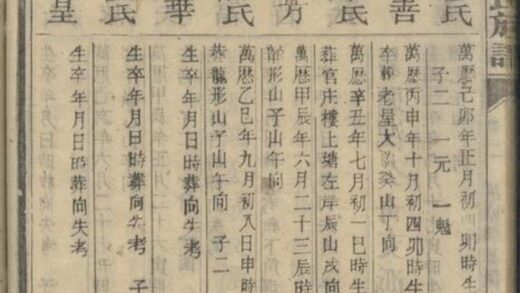 族譜
民
善
民
芳
民
華
民
皇
萬曆己卯年正月初四卯時生
子二 一元 一魁
萬曆丙申年十月初四卯時生
卒葬老大癸山丁向
萬曆辛丑年七月初一巳時生
葬官庄樓上塘左岸辰山戌向
萬曆甲辰年六月二十三辰時
形山子山午向
萬曆乙巳年九月初八日申時
葬龍形山子山午向 子二
生卒年月日時葬向失考
生卒年月日時葬向失考 子
生卒年月日時葬向失考